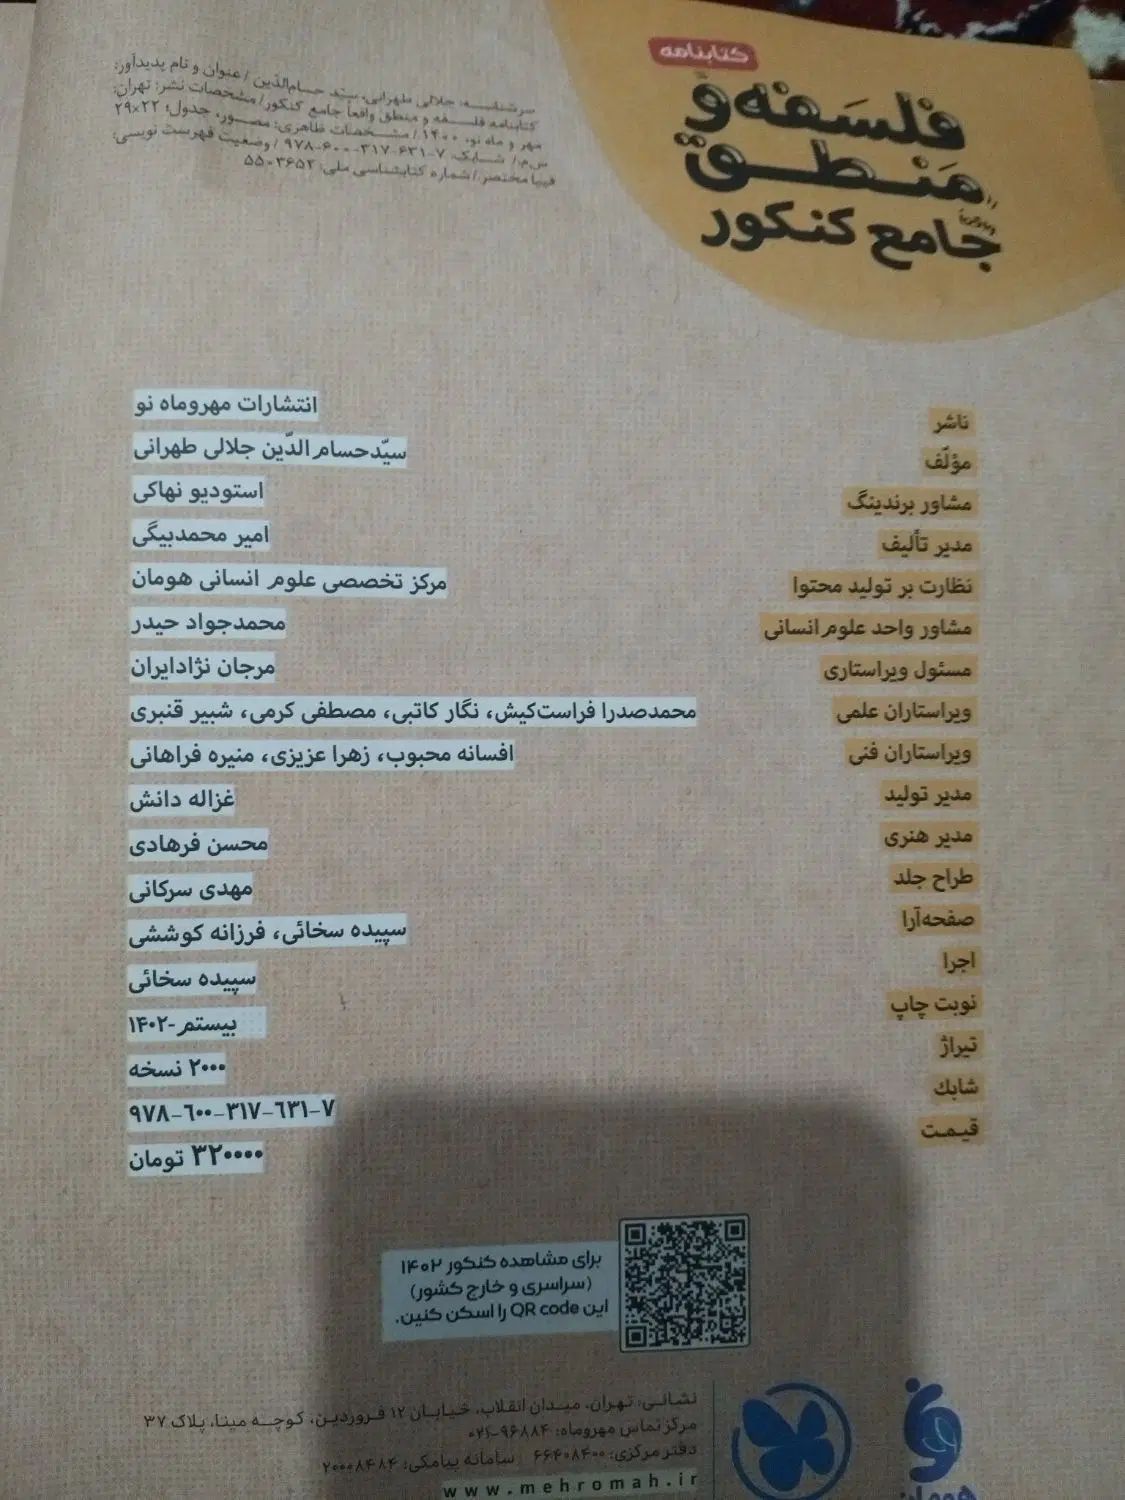 کتابنامه
فلسفه و
منطق
واقعاً
جامع کنکور
سرشناسه: جلالی طهرانی، سیّد حسام‌الدّین / عنوان و نام پدیدآور:
کتابنامه فلسفه و منطق واقعاً جامع کنکور/ مشخصات نشر: تهران:
مهر و ماه نو، ۱۴۰۰ / مشخصات ظاهری: مصور، جدول؛ ۲۲×۲۹
س.م./ شابک: ۷-۶۳۱-۳۱۷-۶۰۰-۹۷۸ / وضعیت فهرست نویسی:
فیپا مختصر / شماره کتابشناسی ملی: ۵۵۰۳۶۵۲
ناشر انتشارات مهروماه نو
مؤلّف سیّدحسام‌الدّین جلالی طهرانی
مشاور برندینگ استودیو نهاکی
مدیر تألیف امیر محمدبیگی
نظارت بر تولید محتوا مرکز تخصصی علوم انسانی هومان
مشاور واحد علوم‌انسانی محمدجواد حیدر
مسئول ویراستاری مرجان نژادایران
ویراستاران علمی محمدصدرا فراست‌کیش، نگار کاتبی، مصطفی کرمی، شبیر قنبری
ویراستاران فنی افسانه محبوب، زهرا عزیزی، منیره فراهانی
مدیر تولید غزاله دانش
مدیر هنری محسن فرهادی
طراح جلد مهدی سرکانی
صفحه‌آرا سپیده سخائی، فرزانه کوششی
اجرا سپیده سخائی
نوبت چاپ بیستم-۱۴۰۲
تیراژ ۲۰۰۰ نسخه
شابك ۹۷۸-٦۰۰-۳۱۷-٦۳۱-۷
قیمت ۳۲۰۰۰۰ تومان
برای مشاهده کنکور ۱۴۰۲
(سراسری و خارج کشور)
این QR code را اسکن کنین.
نشانی: تهران، میدان انقلاب، خیابان ۱۲ فروردین، کوچه مینا، پلاک ۳۷
مرکز تماس مهروماه: ۹۶۸۸۴-۰۲۱
دفتر مرکزی: ۶۶۴۰۸۴۰۰ سامانه پیامکی: ۲۰۰۰۸۴۸۴
www.mehromah.ir
هومان